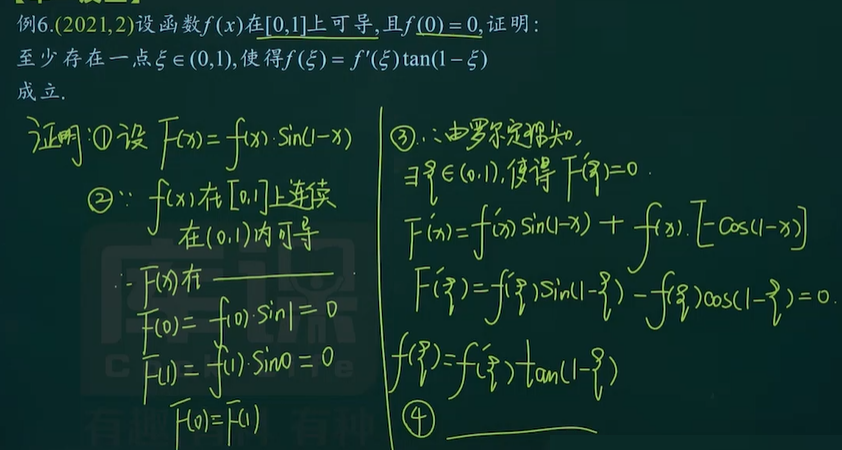 例6.(2021,2)设函数f(x)在[0,1]上可导,且f(0)=0,证明:
至少存在一点ξ∈(0,1),使得f(ξ)=f'(ξ)tan(1-ξ)
成立.
证明:①设 F(x)=f(x)·sin(1-x)
②∵ f(x)在[0,1]上连续
在(0,1)内可导
∴ F(x)在
F(0)=f(0)·sin1=0
F(1)=f(1)·sin0=0
F(0)=F(1)
③.∴由罗尔定理知,
∃ξ∈(0,1),使得F'(ξ)=0.
F'(x)=f'(x)sin(1-x)+f(x).[-cos(1-x)]
F'(ξ)=f'(ξ)sin(1-ξ)-f(ξ)cos(1-ξ)=0.
f(ξ)=f'(ξ)tan(1-ξ)
④
库课